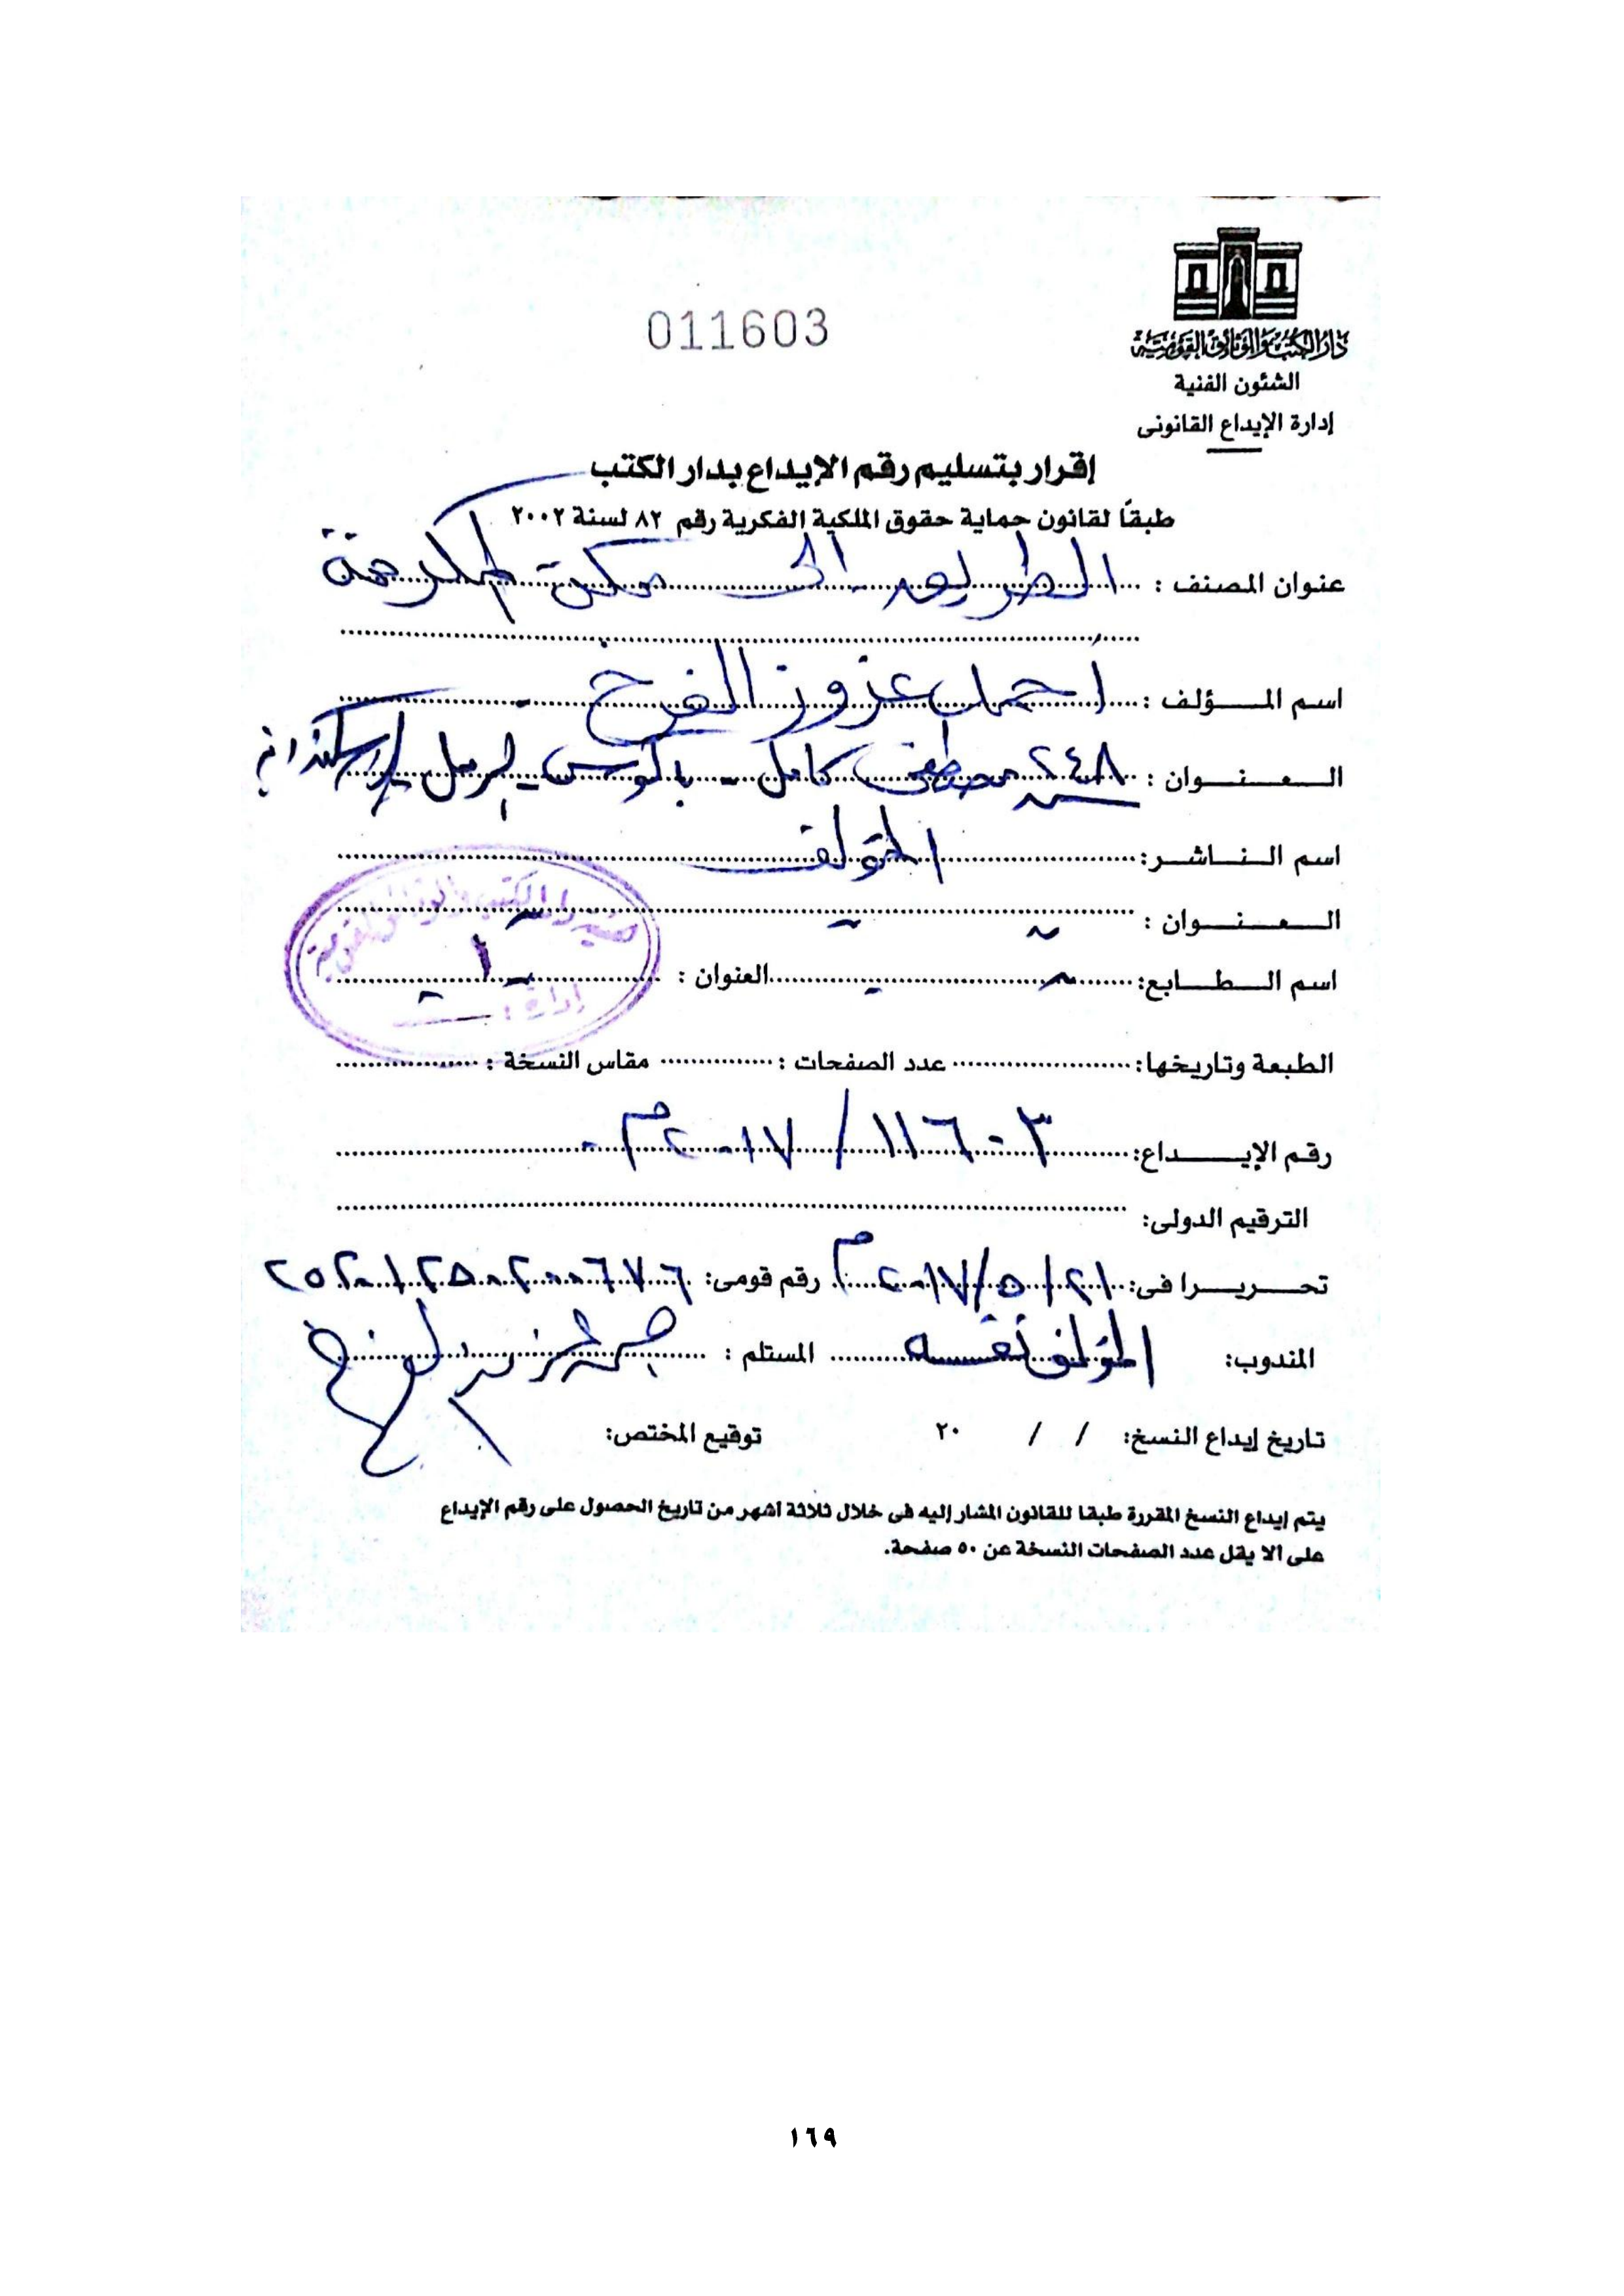 011603
دار الكتب والوثائق القومية
الشئون الفنية
إدارة الإيداع القانونى
إقرار بتسليم رقم الإيداع بدار الكتب
طبقًا لقانون حماية حقوق الملكية الفكرية رقم ٨٢ لسنة ٢٠٠٢
عنوان المصنف : الطريق إلى مكة المكرمة
اسم المؤلف : أحمد عزوز الفرخ
العنوان : ٢٤٨ ش مصطفى كامل - باكوس - الرمل - الإسكندرية
اسم الناشر : المؤلف
العنوان :
اسم الطابع : العنوان :
الطبعة وتاريخها : عدد الصفحات : مقاس النسخة :
رقم الإيداع : ١١٦٠٣ / ٢٠١٧م
الترقيم الدولى :
تحريرا فى : ٢١ / ٥ / ٢٠١٧م رقم قومى :
المندوب : المؤلف نفسه المستلم :
تاريخ إيداع النسخ : / / ٢٠ توقيع المختص :
يتم إيداع النسخ المقررة طبقا للقانون المشار إليه فى خلال ثلاثة اشهر من تاريخ الحصول على رقم الإيداع
على الا يقل عدد الصفحات النسخة عن ٥٠ صفحة.
١٦٩